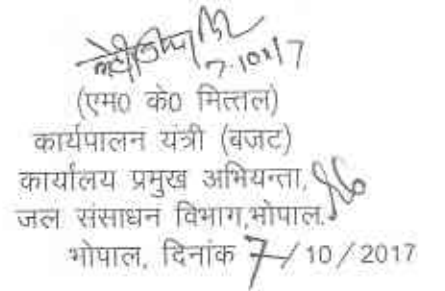 7.10.17
(एम0 के0 मित्तल)
कार्यपालन यंत्री (बजट)
कार्यालय प्रमुख अभियन्ता,
जल संसाधन विभाग,भोपाल.
भोपाल, दिनांक 7/10/2017